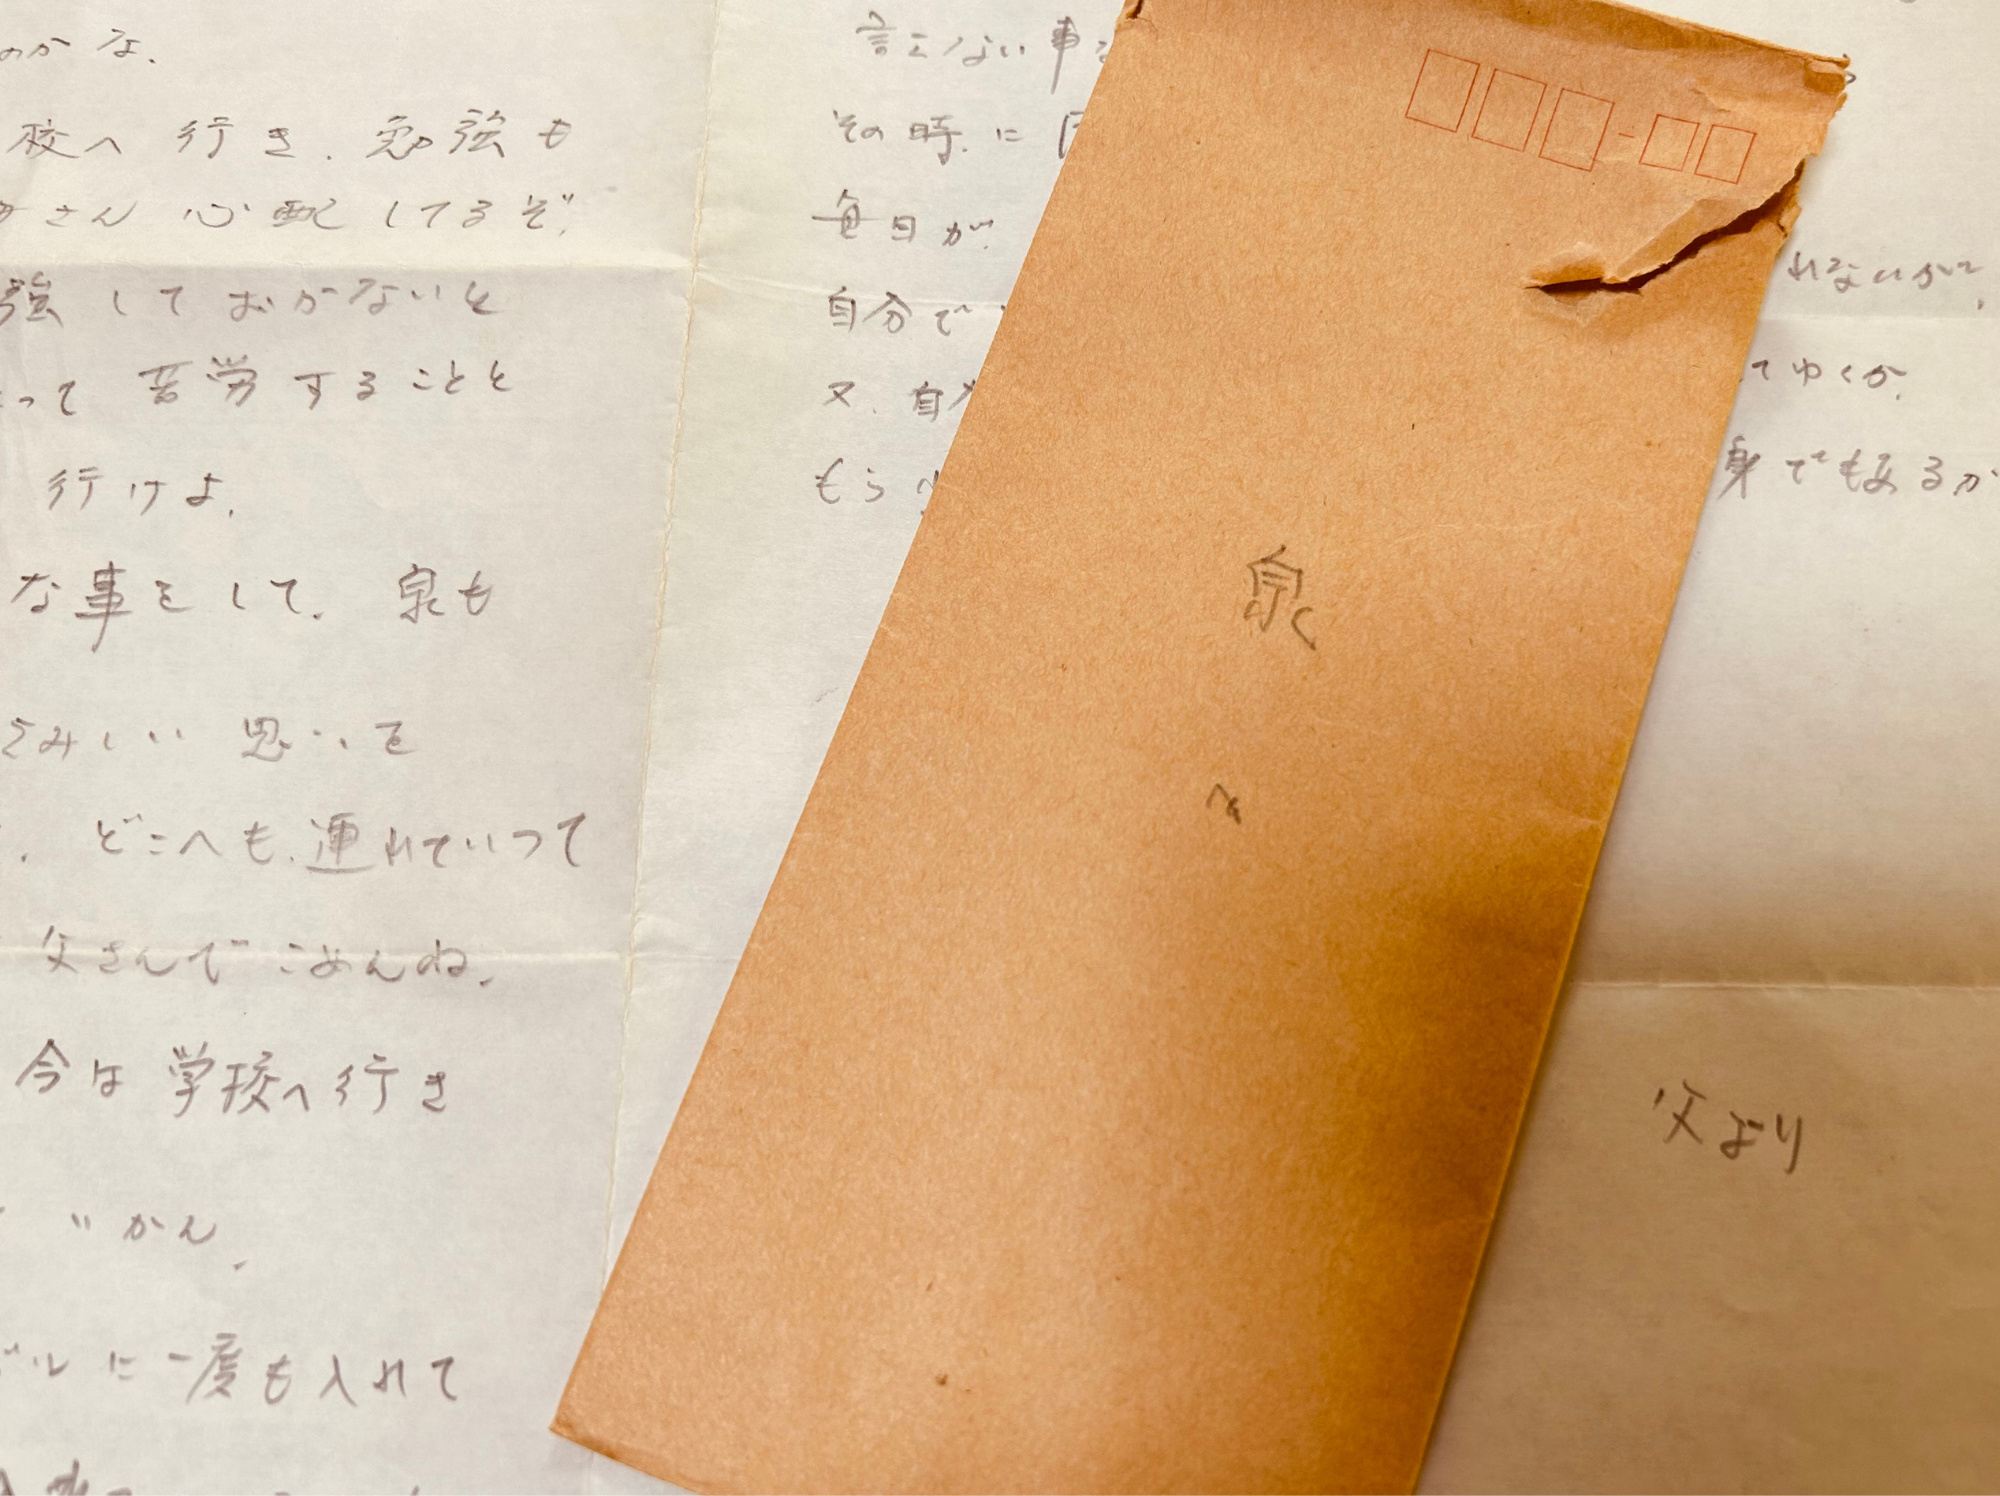 のかな、
校へ行き、勉強も
さん心配してるぞ、
強しておかないと
って苦労することと
行けよ、
な事をして、泉も
みしい思いを
どこへも、連れていって
父さんでごめんね、
今は学校へ行き
いかん、
ルに一度も入れて
言えない事
その時、に
毎日が、
自分で
又、自
もう少
泉
へ
れないがで、
てゆくか、
身でもあるか
父より